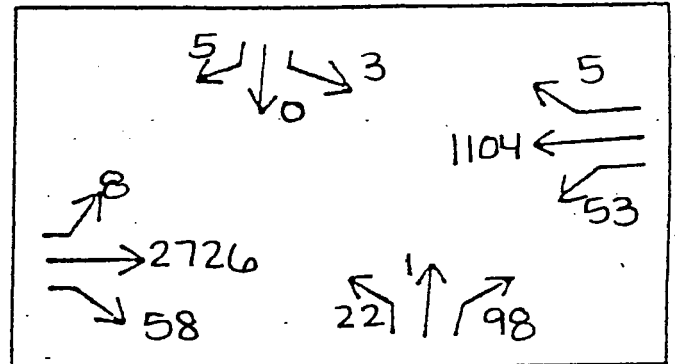 5
3
0
5
1104
53
8
2726
58
1
22
98